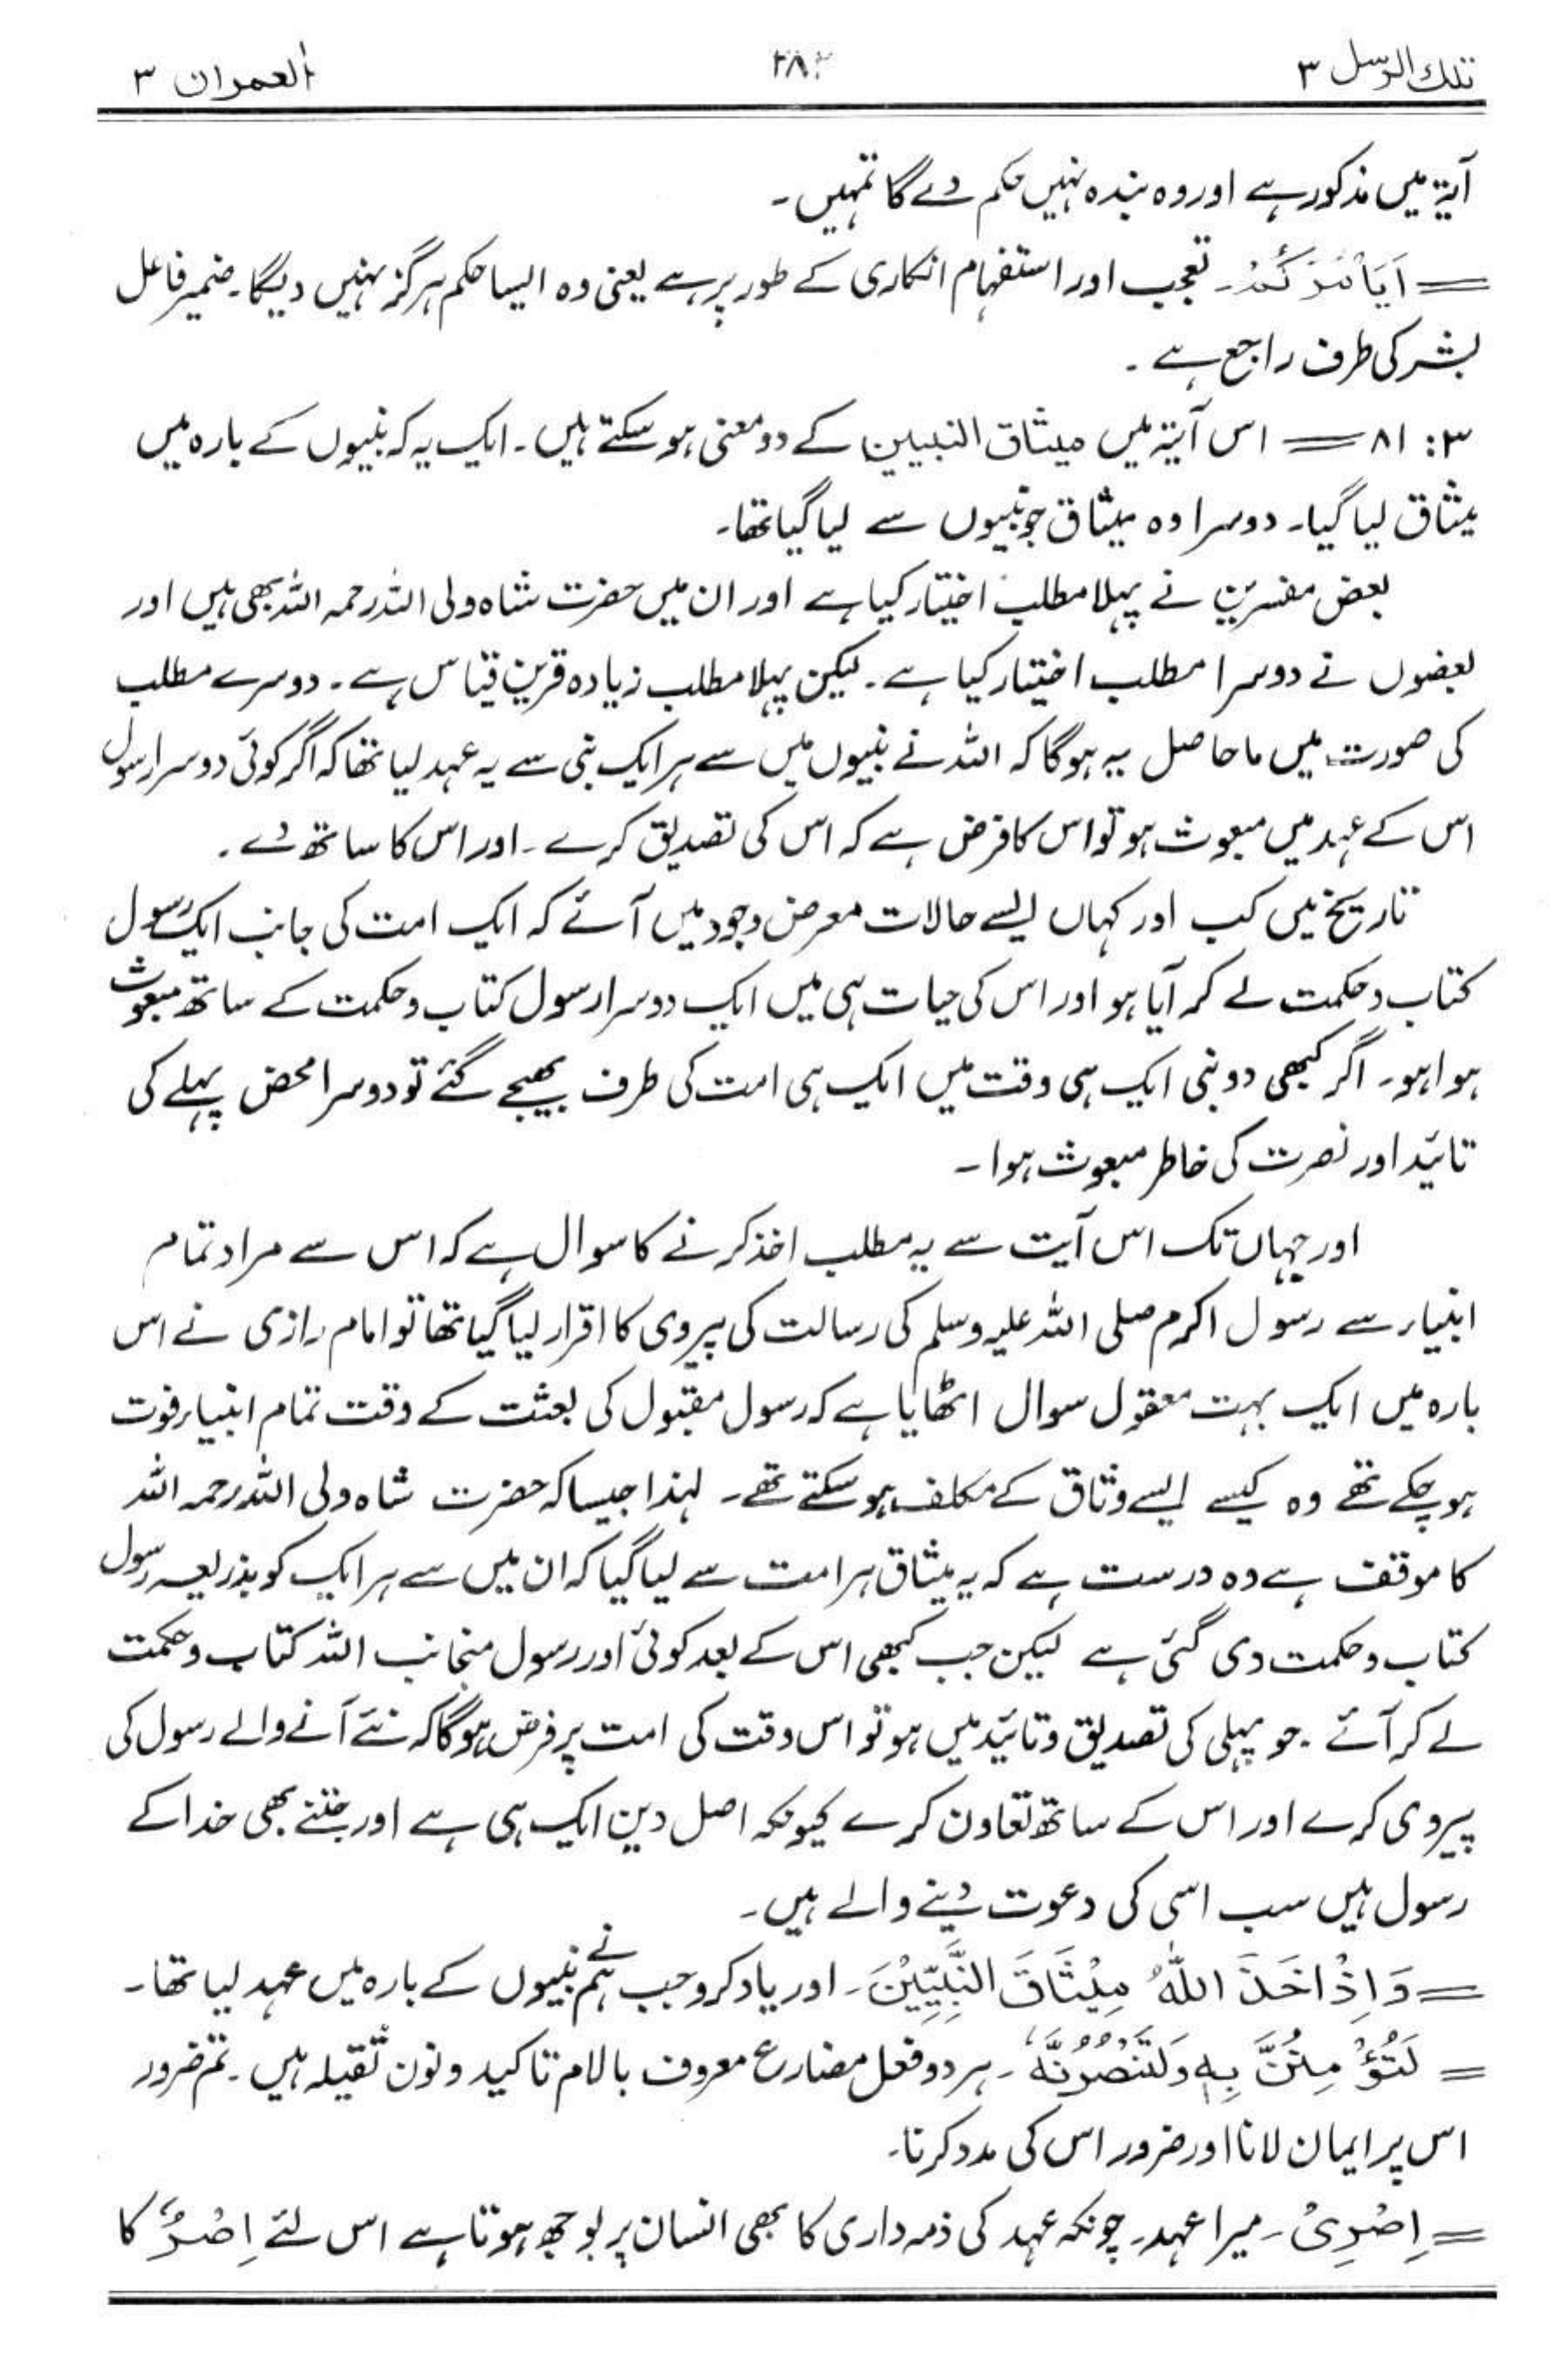 تلك الرسل ۳
۲۸۲
اٰل عمران ۳
آیۃ میں مذکور ہے اور وہ بندہ نہیں حکم دے گا تمہیں۔
= اَيَأْمُرُكُمْ۔ تعجب اور استفہام انکاری کے طور پر ہے یعنی وہ ایسا حکم ہرگز نہیں دیگا۔ ضمیر فاعل
بشر کی طرف راجع ہے ۔
۳: ۸۱ = اس آیۃ میں میثاق النبیین کے دو معنی ہو سکتے ہیں۔ ایک یہ کہ نبیوں کے بارہ میں
میثاق لیا گیا۔ دوسرا وہ میثاق جو نبیوں سے لیا گیا تھا۔
بعض مفسرین نے پہلا مطلب اختیار کیا ہے اور ان میں حضرت شاہ ولی اللہ رحمہ اللہ بھی ہیں اور
بعضوں نے دوسرا مطلب اختیار کیا ہے۔ لیکن پہلا مطلب زیادہ قرین قیاس ہے۔ دوسرے مطلب
کی صورت میں ماحاصل یہ ہوگا کہ اللہ نے نبیوں میں سے ہر ایک نبی سے یہ عہد لیا تھا کہ اگر کوئی دوسرا رسول
اس کے عہد میں مبعوث ہو تو اس کا فرض ہے کہ اس کی تصدیق کرے ۔ اور اس کا ساتھ دے ۔
تاریخ میں کب اور کہاں ایسے حالات معرض وجود میں آئے کہ ایک امت کی جانب ایک رسول
کتاب و حکمت لے کر آیا ہو اور اس کی حیات ہی میں ایک دوسرا رسول کتاب و حکمت کے ساتھ مبعوث
ہوا ہو۔ اگر کبھی دو نبی ایک ہی وقت میں ایک ہی امت کی طرف بھیجے گئے تو دوسرا محض پہلے کی
تائید اور نصرت کی خاطر مبعوث ہوا ۔
اور جہاں تک اس آیت سے یہ مطلب اخذ کرنے کا سوال ہے کہ اس سے مراد تمام
انبیاء سے رسول اکرم صلی اللہ علیہ وسلم کی رسالت کی پیروی کا اقرار لیا گیا تھا تو امام رازی نے اس
بارہ میں ایک بہت معقول سوال اٹھایا ہے کہ رسول مقبول کی بعثت کے وقت تمام انبیاء فوت
ہو چکے تھے وہ کیسے ایسے وثاق کے مکلف ہو سکتے تھے۔ لہذا جیسا کہ حضرت شاہ ولی اللہ رحمہ اللہ
کا موقف ہے وہ درست ہے کہ یہ میثاق ہر امت سے لیا گیا کہ ان میں سے ہر ایک کو بذریعہ رسول
کتاب و حکمت دی گئی ہے لیکن جب کبھی اس کے بعد کوئی اور رسول منجانب اللہ کتاب و حکمت
لے کر آئے ۔ جو پہلی کی تصدیق و تائید میں ہو تو اس وقت کی امت پر فرض ہوگا کہ نئے آنے والے رسول کی
پیروی کرے اور اس کے ساتھ تعاون کرے کیونکہ اصل دین ایک ہی ہے اور جتنے بھی خدا کے
رسول ہیں سب اسی کی دعوت دینے والے ہیں۔
= وَاِذْ اَخَذَ اللّٰهُ مِيْثَاقَ النَّبِيّٖنَ۔ اور یاد کرو جب ہم نے نبیوں کے بارہ میں عہد لیا تھا۔
= لَتُؤْمِنُنَّ بِهٖ وَلَتَنْصُرُنَّهٗ ۔ ہر دو فعل مضارع معروف بالام تاکید و نون ثقیلہ ہیں ۔ تم ضرور
اس پر ایمان لانا اور ضرور اس کی مدد کرنا۔
= اِصْرِيْ ۔ میرا عہد۔ چونکہ عہد کی ذمہ داری کا بھی انسان پر بوجھ ہوتا ہے اس لئے اِصْرٌ کا